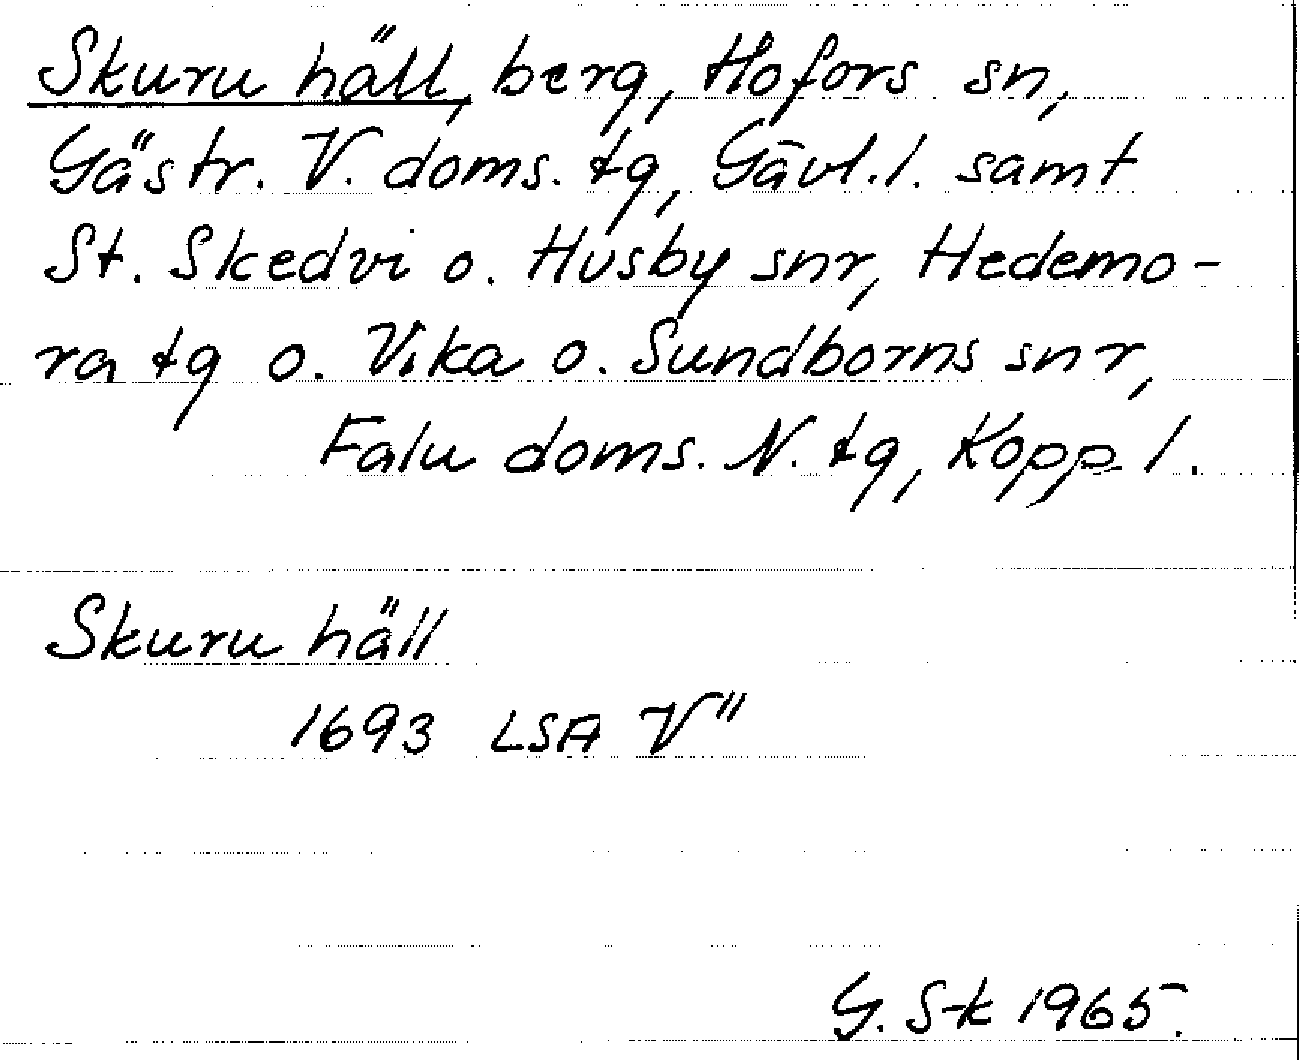 Skuru häll, berg, Hofors sn,
Gästr. V. doms. tg, Gävl.l. samt
St. Skedvi o. Husby snr, Hedemo-
ra tg o. Vika o. Sundborns snr,
Falu doms. N. tg, Kopp. l.
Skuru häll
1693 LSA V"
G. S-k 1965.